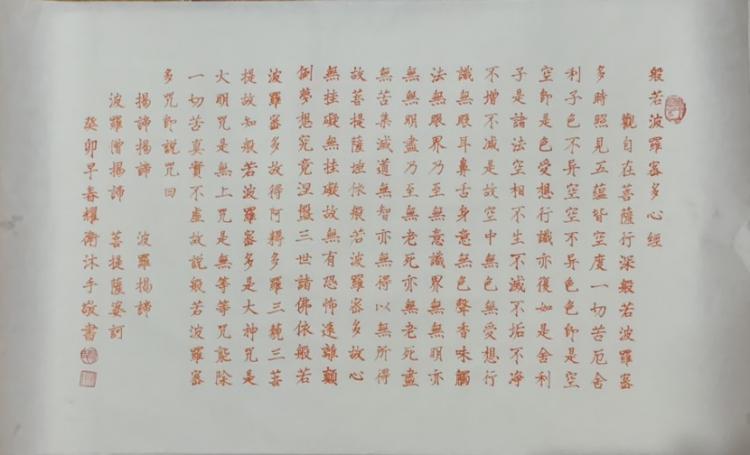 般若波羅蜜多心經
觀自在菩薩行深般若波羅蜜
多時照見五蘊皆空度一切苦厄舍
利子色不異空空不異色色即是空
空即是色受想行識亦復如是舍利
子是諸法空相不生不滅不垢不淨
不增不減是故空中無色無受想行
識無眼耳鼻舌身意無色聲香味觸
法無眼界乃至無意識界無無明亦
無無明盡乃至無老死亦無老死盡
無苦集滅道無智亦無得以無所得
故菩提薩埵依般若波羅蜜多故心
無挂礙無挂礙故無有恐怖遠離顛
倒夢想究竟涅槃三世諸佛依般若
波羅蜜多故得阿耨多羅三藐三菩
提故知般若波羅蜜多是大神咒是
大明咒是無上咒是無等等咒能除
一切苦真實不虛故說般若波羅蜜
多咒即說咒曰
揭諦揭諦 波羅揭諦
波羅僧揭諦 菩提薩婆訶
癸卯早春耀衛沐手敬書